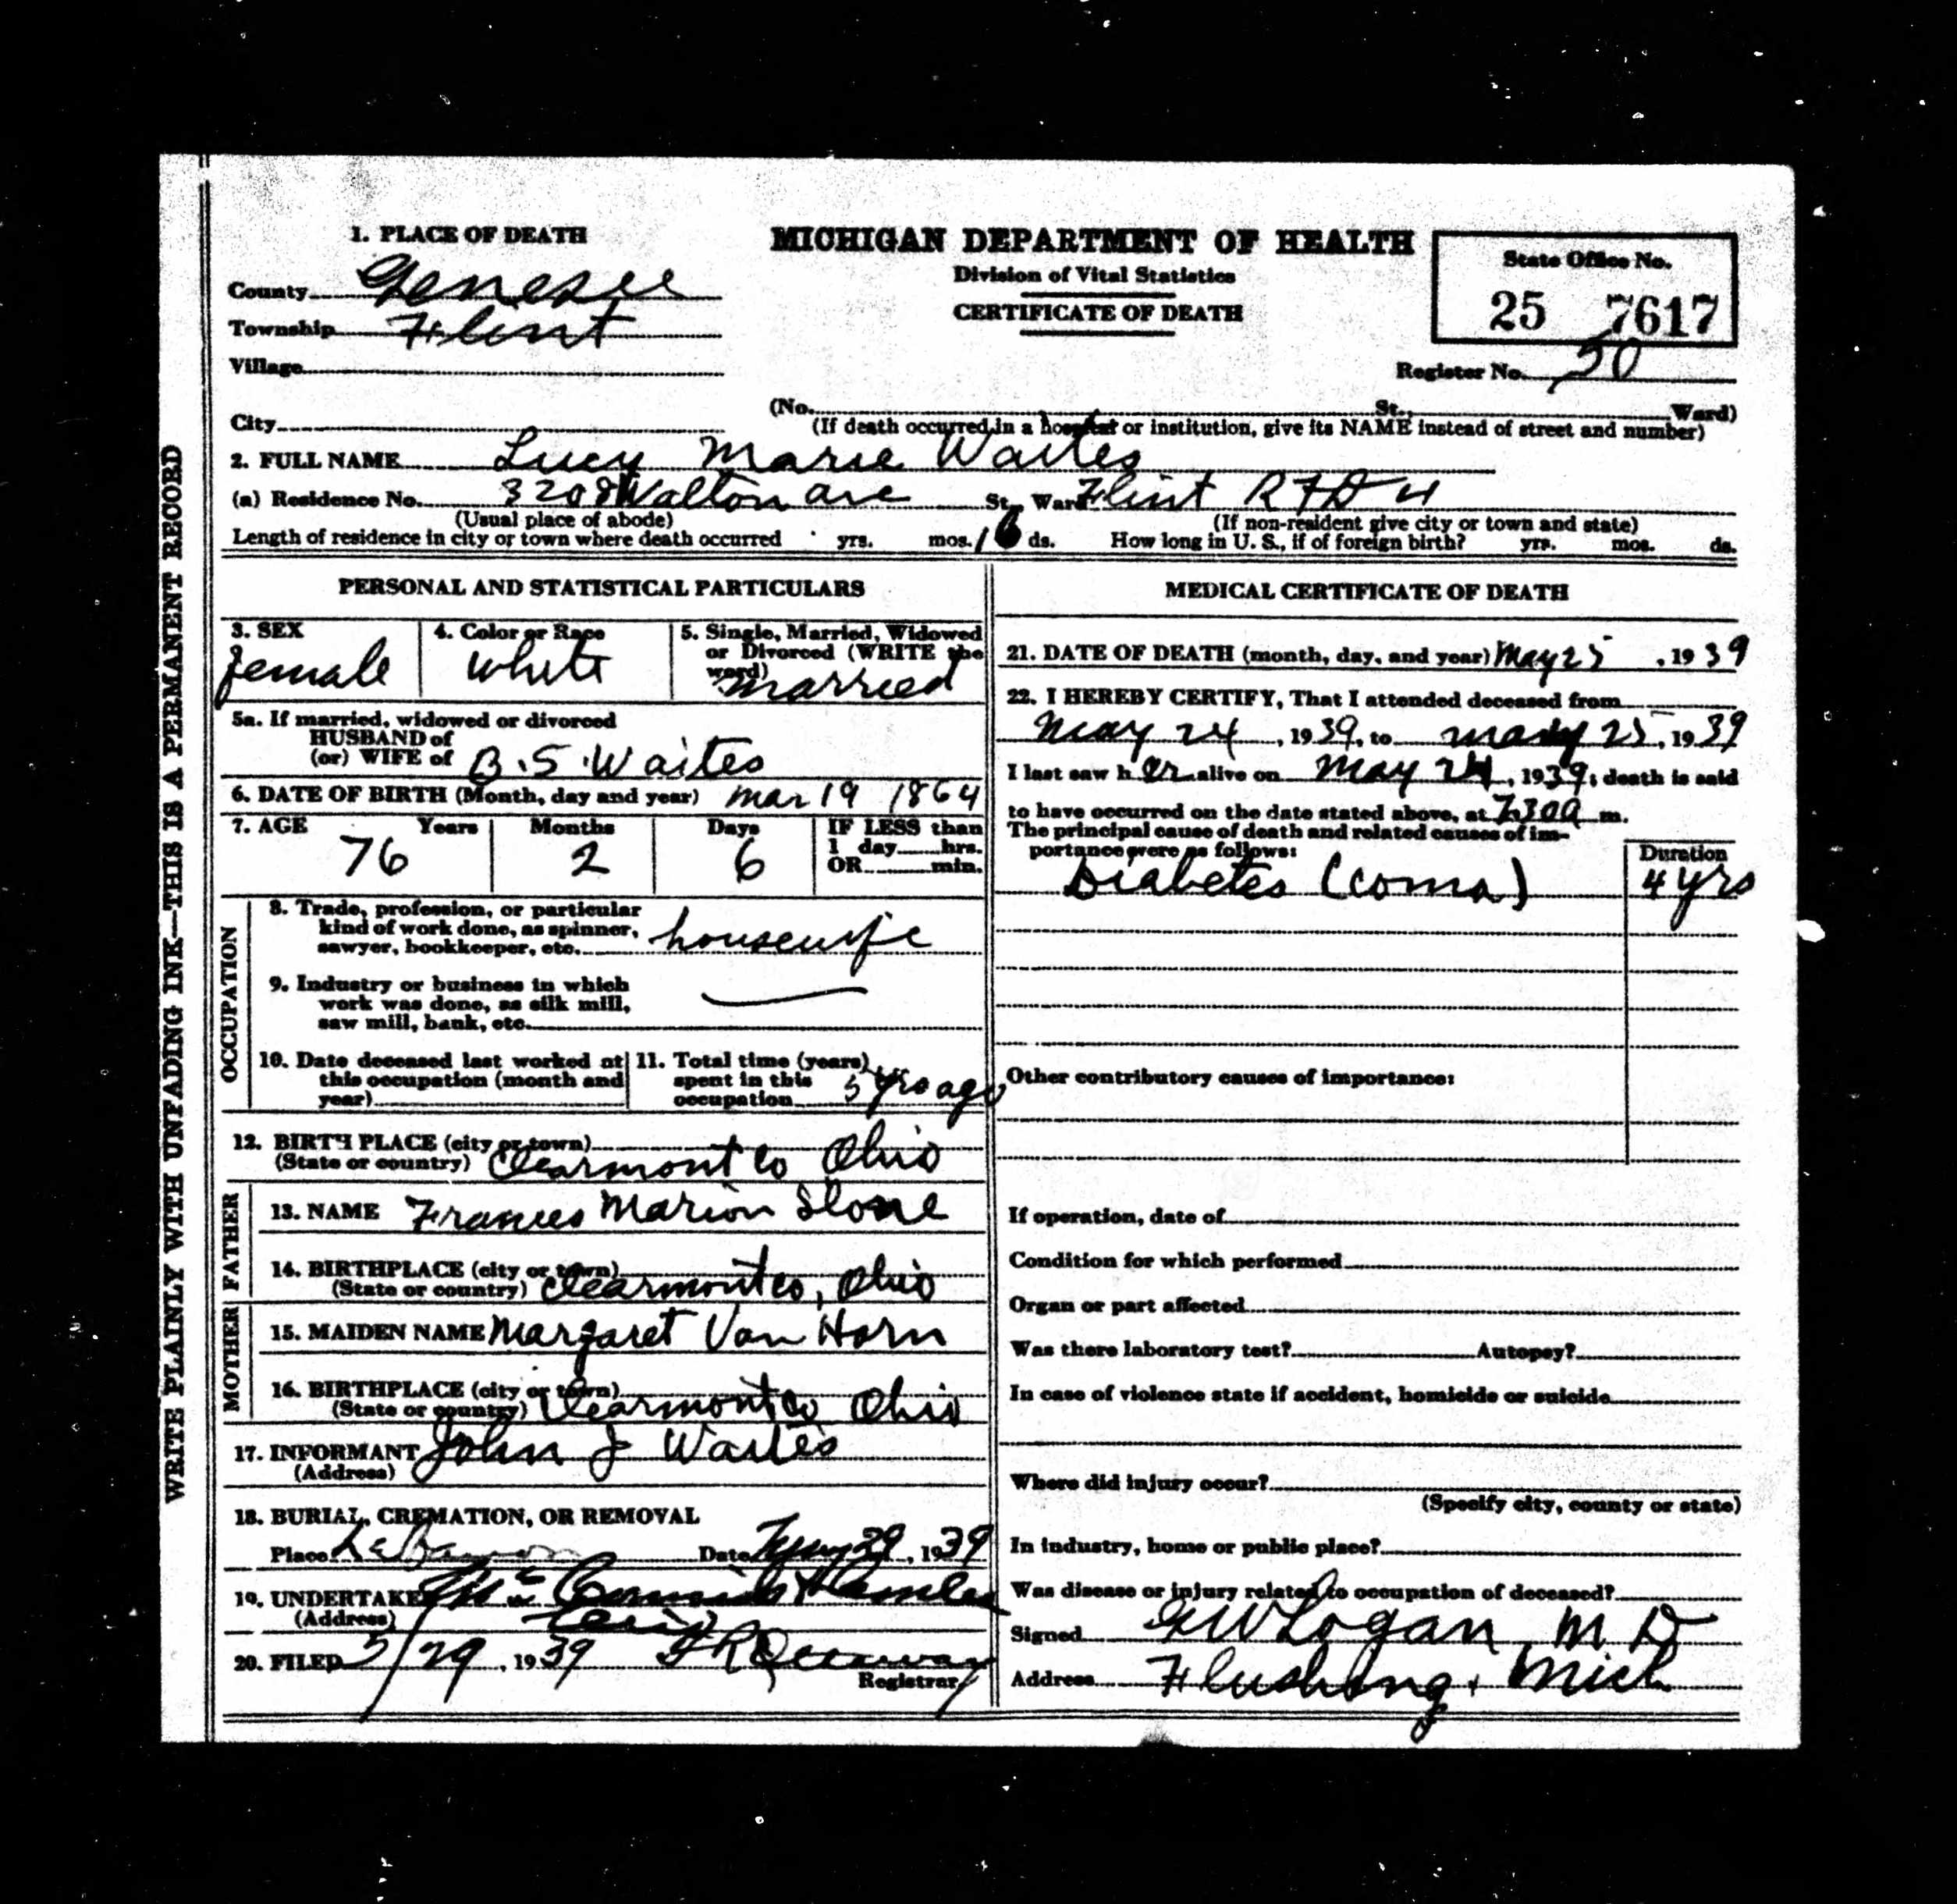 WRITE PLAINLY WITH UNFADING INK—THIS IS A PERMANENT RECORD
1. PLACE OF DEATH
County Genesee
Township Flint
Village
City
MICHIGAN DEPARTMENT OF HEALTH
Division of Vital Statistics
CERTIFICATE OF DEATH
State Office No.
25 7617
Register No. 50
(No. St., Ward)
(If death occurred in a hospital or institution, give its NAME instead of street and number)
2. FULL NAME Lucy Marie Waites
(a) Residence No. 3208 Walton ave St., Ward Flint RFD 4
(Usual place of abode) (If non-resident give city or town and state)
Length of residence in city or town where death occurred yrs. mos. 16 ds. How long in U. S., if of foreign birth? yrs. mos. ds.
PERSONAL AND STATISTICAL PARTICULARS
3. SEX
female
4. Color or Race
white
5. Single, Married, Widowed
or Divorced (WRITE the
word)
married
5a. If married, widowed or divorced
HUSBAND of
(or) WIFE of B. S. Waites
6. DATE OF BIRTH (Month, day and year) mar 19 1864
7. AGE Years Months Days IF LESS than
1 day hrs.
OR min.
76 2 6
OCCUPATION
8. Trade, profession, or particular
kind of work done, as spinner,
sawyer, bookkeeper, etc. housewife
9. Industry or business in which
work was done, as silk mill,
saw mill, bank, etc.
10. Date deceased last worked at
this occupation (month and
year)
11. Total time (years)
spent in this
occupation 5 yrs ago
12. BIRTH PLACE (city or town)
(State or country) Clearmont Co Ohio
FATHER
13. NAME Frances Marion Slone
14. BIRTHPLACE (city or town)
(State or country) Clearmont Co, Ohio
MOTHER
15. MAIDEN NAME Margaret Van Horn
16. BIRTHPLACE (city or town)
(State or country) Clearmont Co Ohio
17. INFORMANT John J Waites
(Address)
18. BURIAL, CREMATION, OR REMOVAL
Place Lebanon Date May 29, 1939
19. UNDERTAKER
(Address)
20. FILED 5/29, 1939
Registrar
MEDICAL CERTIFICATE OF DEATH
21. DATE OF DEATH (month, day, and year) May 25, 1939
22. I HEREBY CERTIFY, That I attended deceased from
May 24, 1939, to May 25, 1939
I last saw h er alive on May 24, 1939; death is said
to have occurred on the date stated above, at 7:30a m.
The principal cause of death and related causes of im-
portance were as follows:
Duration
Diabetes (coma) 4 yrs
Other contributory causes of importance:
If operation, date of
Condition for which performed
Organ or part affected
Was there laboratory test? Autopsy?
In case of violence state if accident, homicide or suicide
Where did injury occur?
(Specify city, county or state)
In industry, home or public place?
Was disease or injury related to occupation of deceased?
Signed G W Logan, M D
Address Flushing, Mich